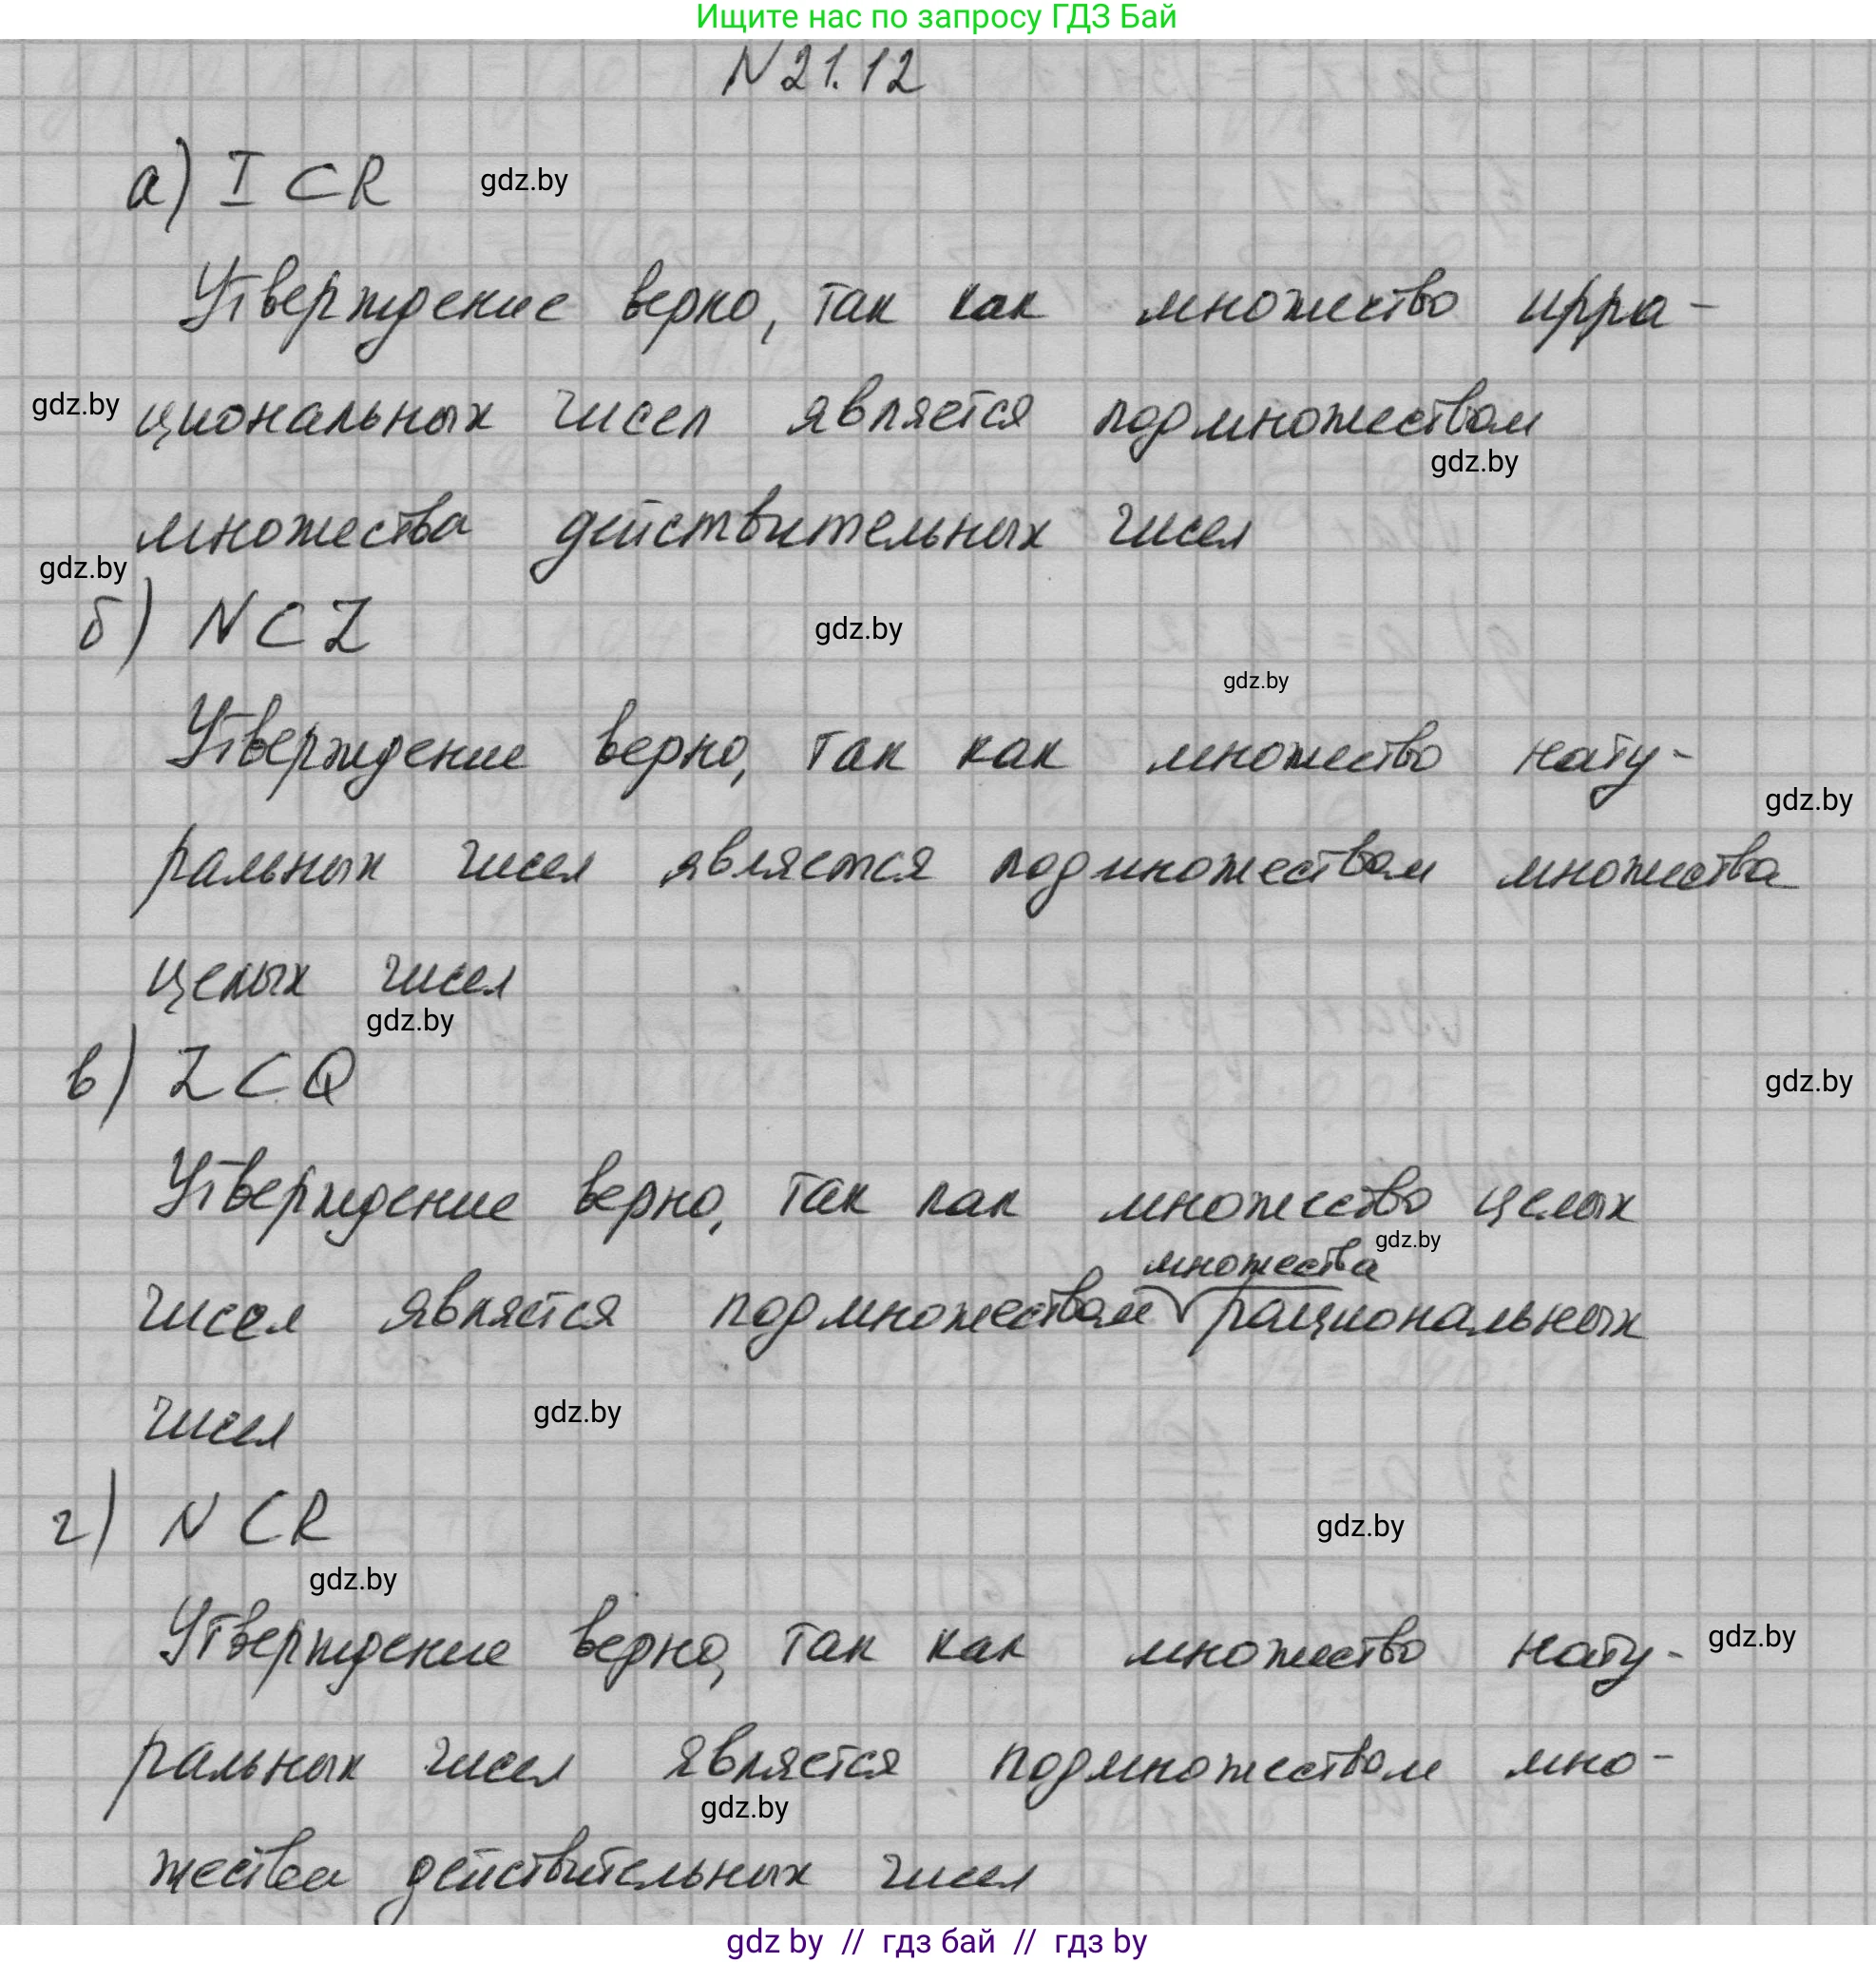 Ищите нас по запросу ГДЗ Бай
N 21.12
а) I ⊂ R gdz.by
Утверждение верно, так как множество ирра-
gdz.by циональных чисел является подмножеством
gdz.by
множества действительных чисел
gdz.by
б) N ⊂ Z gdz.by
gdz.by
Утверждение верно, так как множество нату-
gdz.by
ральных чисел является подмножеством множества
целых чисел
gdz.by
в) Z ⊂ Q gdz.by
Утверждение верно, так как множество целых
gdz.by
множества
чисел является подмножеством рациональных
чисел gdz.by
г) N ⊂ R gdz.by
gdz.by
Утверждение верно, так как множество нату- gdz.by
ральных чисел является подмножеством мно-
gdz.by
жества действительных чисел
gdz by // гдз бай // гдз by